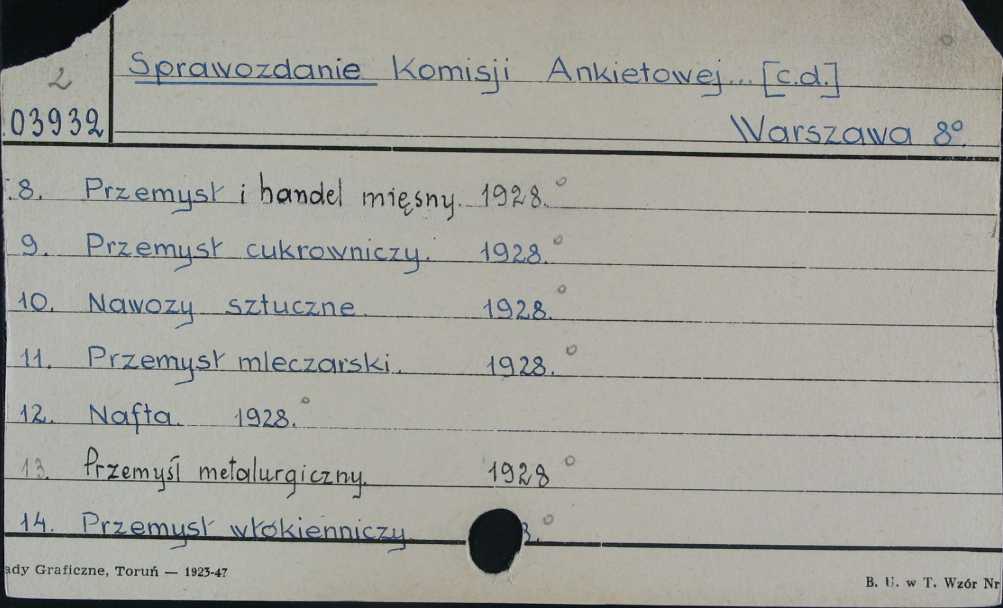 2
Sprawozdanie Komisji Ankietowej... [c.d.]
03932
Warszawa 8°.
8. Przemysł i handel mięsny. 1928.°
9. Przemysł cukrowniczy. 1928.°
10. Nawozy sztuczne. 1928.°
11. Przemysł mleczarski. 1928.°
12. Nafta. 1928.°
13. Przemyśl metalurgiczny. 1928°
14. Przemysł włókienniczy 8.°
ady Graficzne, Toruń — 1923-47
B. U. w T. Wzór Nr